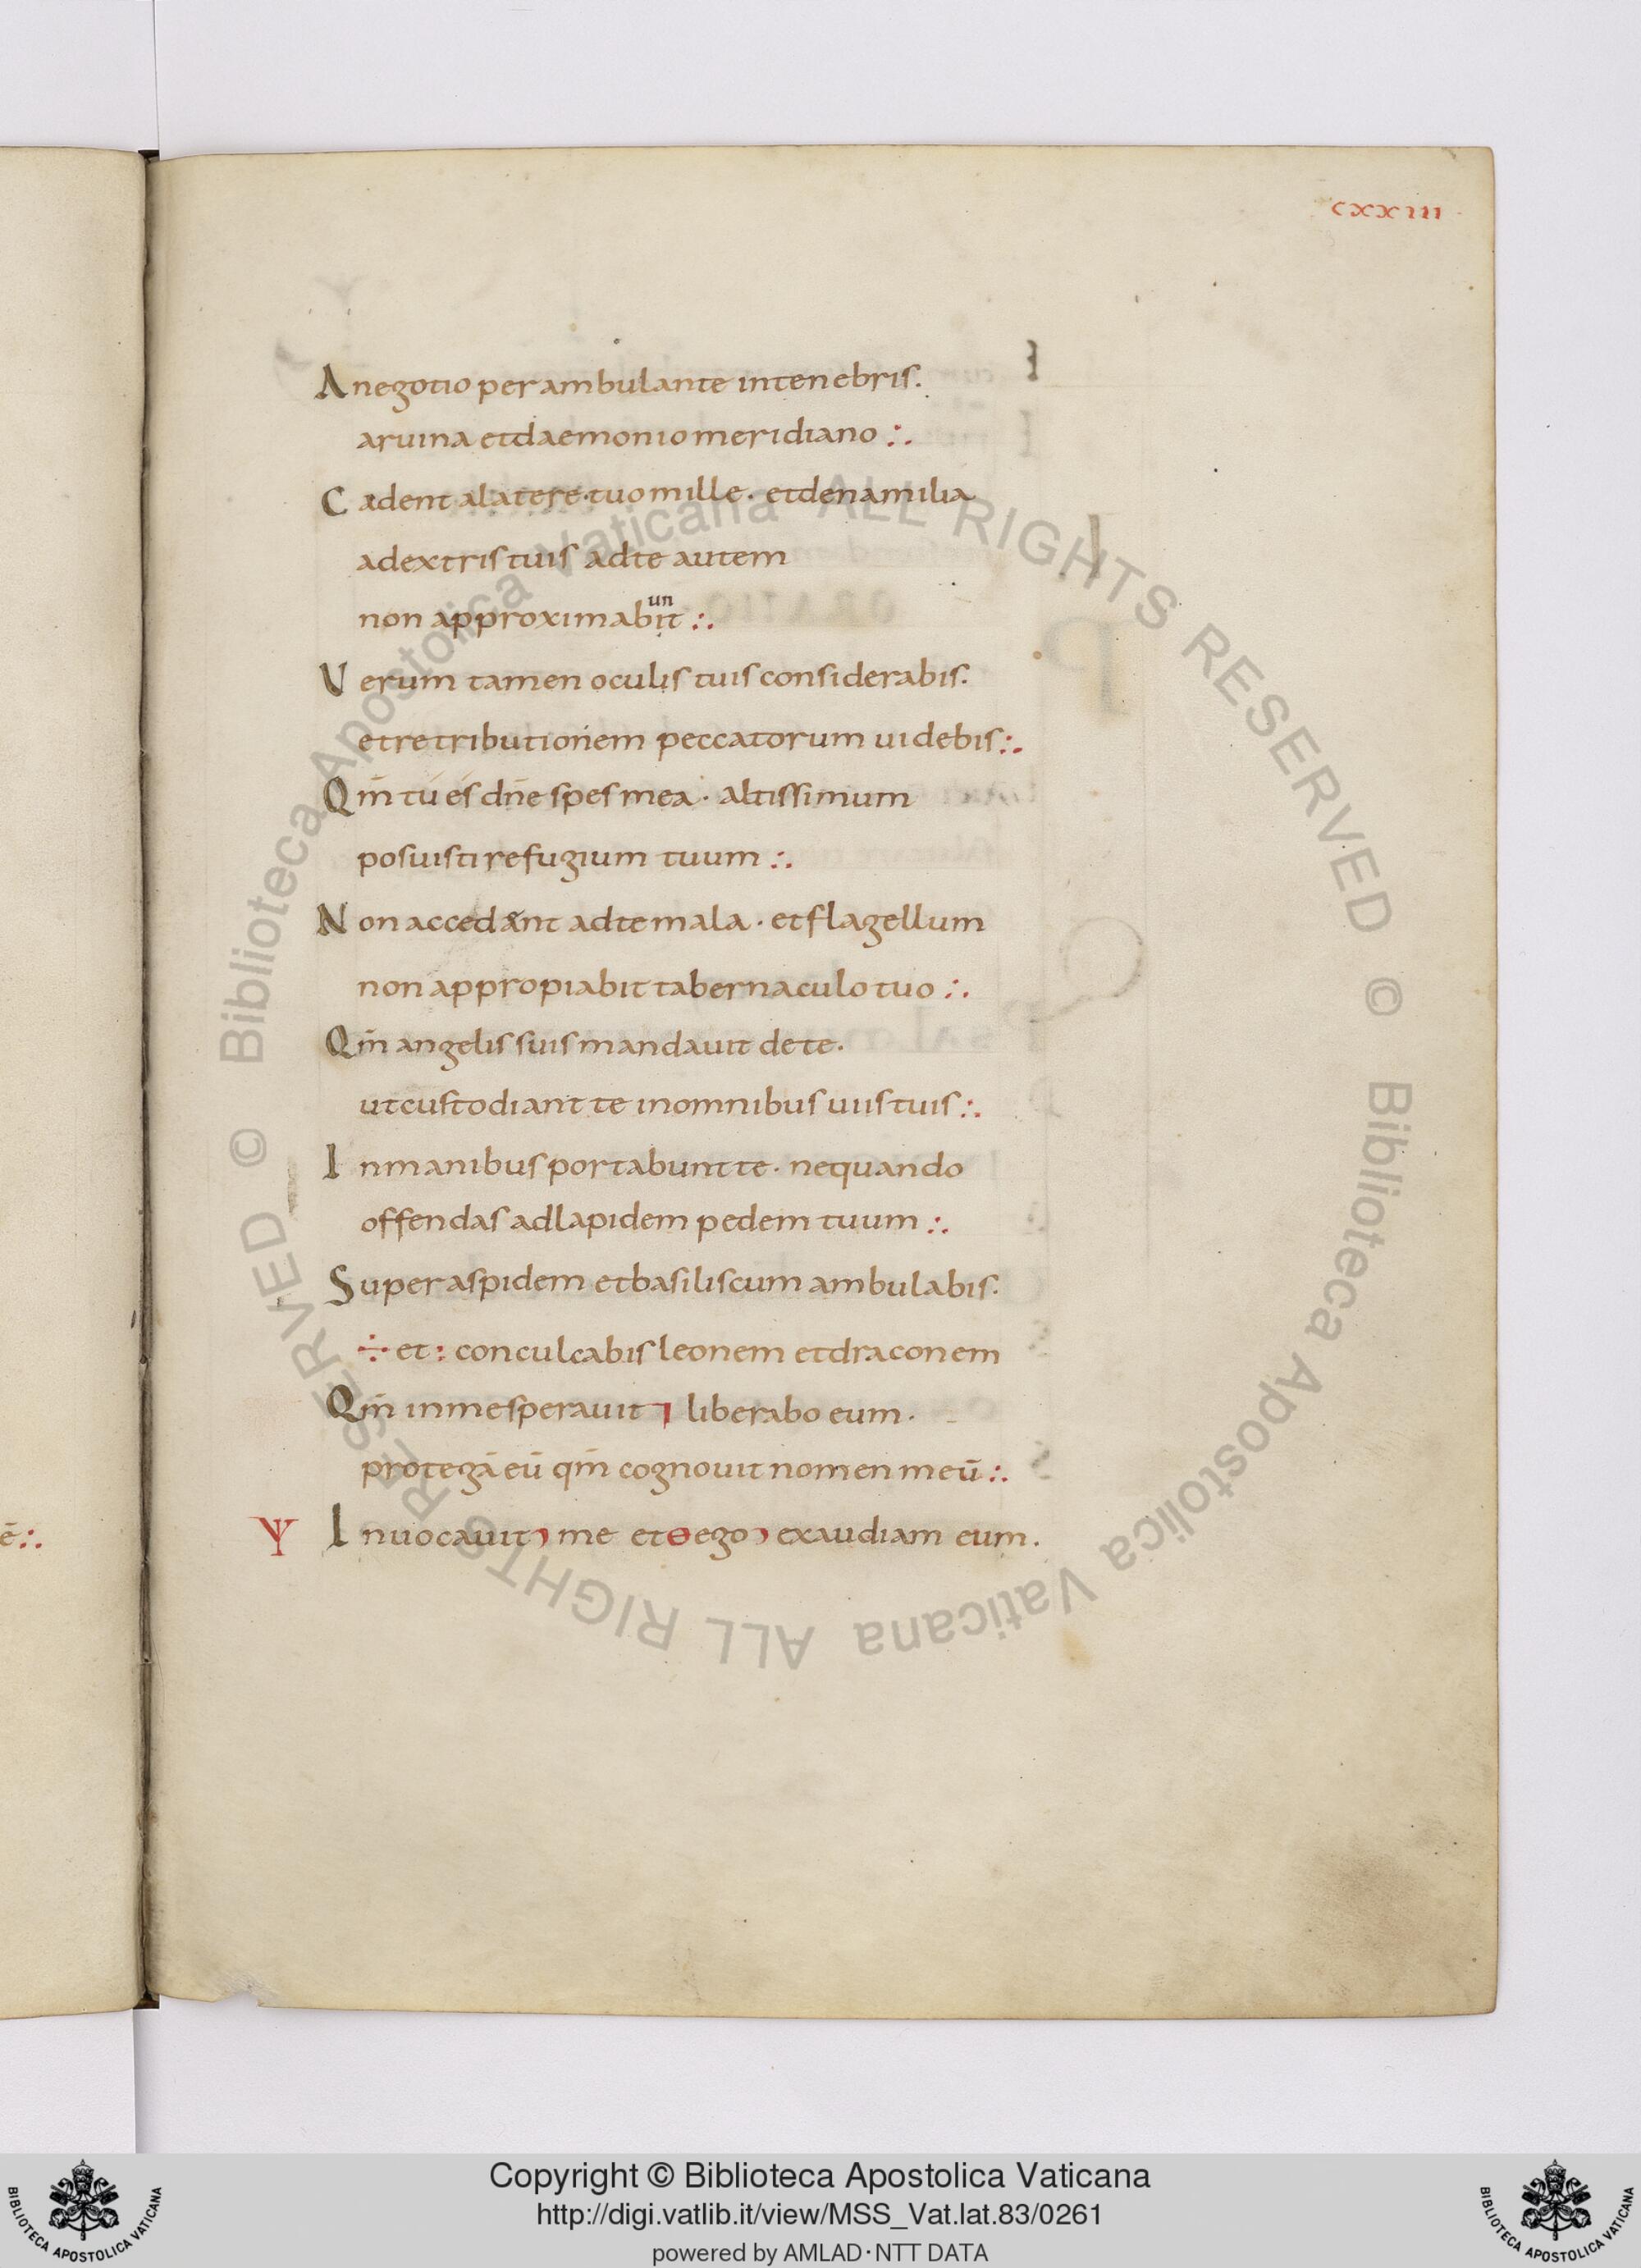 cxxiii
A negotio perambulante intenebris.
aruina etdaemonio meridiano :.
C adent alatere·tuo mille· etdenamilia
adextris tuis adte autem
un
non approximabit :.
V erum tamen oculis tuis considerabis.
etretributionem peccatorum uidebis :.
Qm̄ tu es dn̄e spes mea· altissimum
posuisti refugium tuum :.
N on accedant adte mala· etflagellum
non appropiabit tabernaculo tuo :.
Qm̄ angelis suis mandauit dete·
utcustodiant te inomnibus uiis tuis :.
I nmanibus portabunt te· nequando
offendas adlapidem pedem tuum :.
S uper aspidem etbasiliscum ambulabis.
÷ et : conculcabis leonem etdraconem
Qm̄ inme sperauit ⁊ liberabo eum·
protegā eū qm̄ cognouit nomen meū :.
ē :. Y I nuocauit me et ego exaudiam eum.
© Biblioteca Apostolica Vaticana ALL RIGHTS RESERVED © Biblioteca Apostolica Vaticana ALL RIGHTS RESERVED
Copyright © Biblioteca Apostolica Vaticana
http://digi.vatlib.it/view/MSS_Vat.lat.83/0261
powered by AMLAD·NTT DATA
BIBLIOTECA APOSTOLICA VATICANA
BIBLIOTECA APOSTOLICA VATICANA